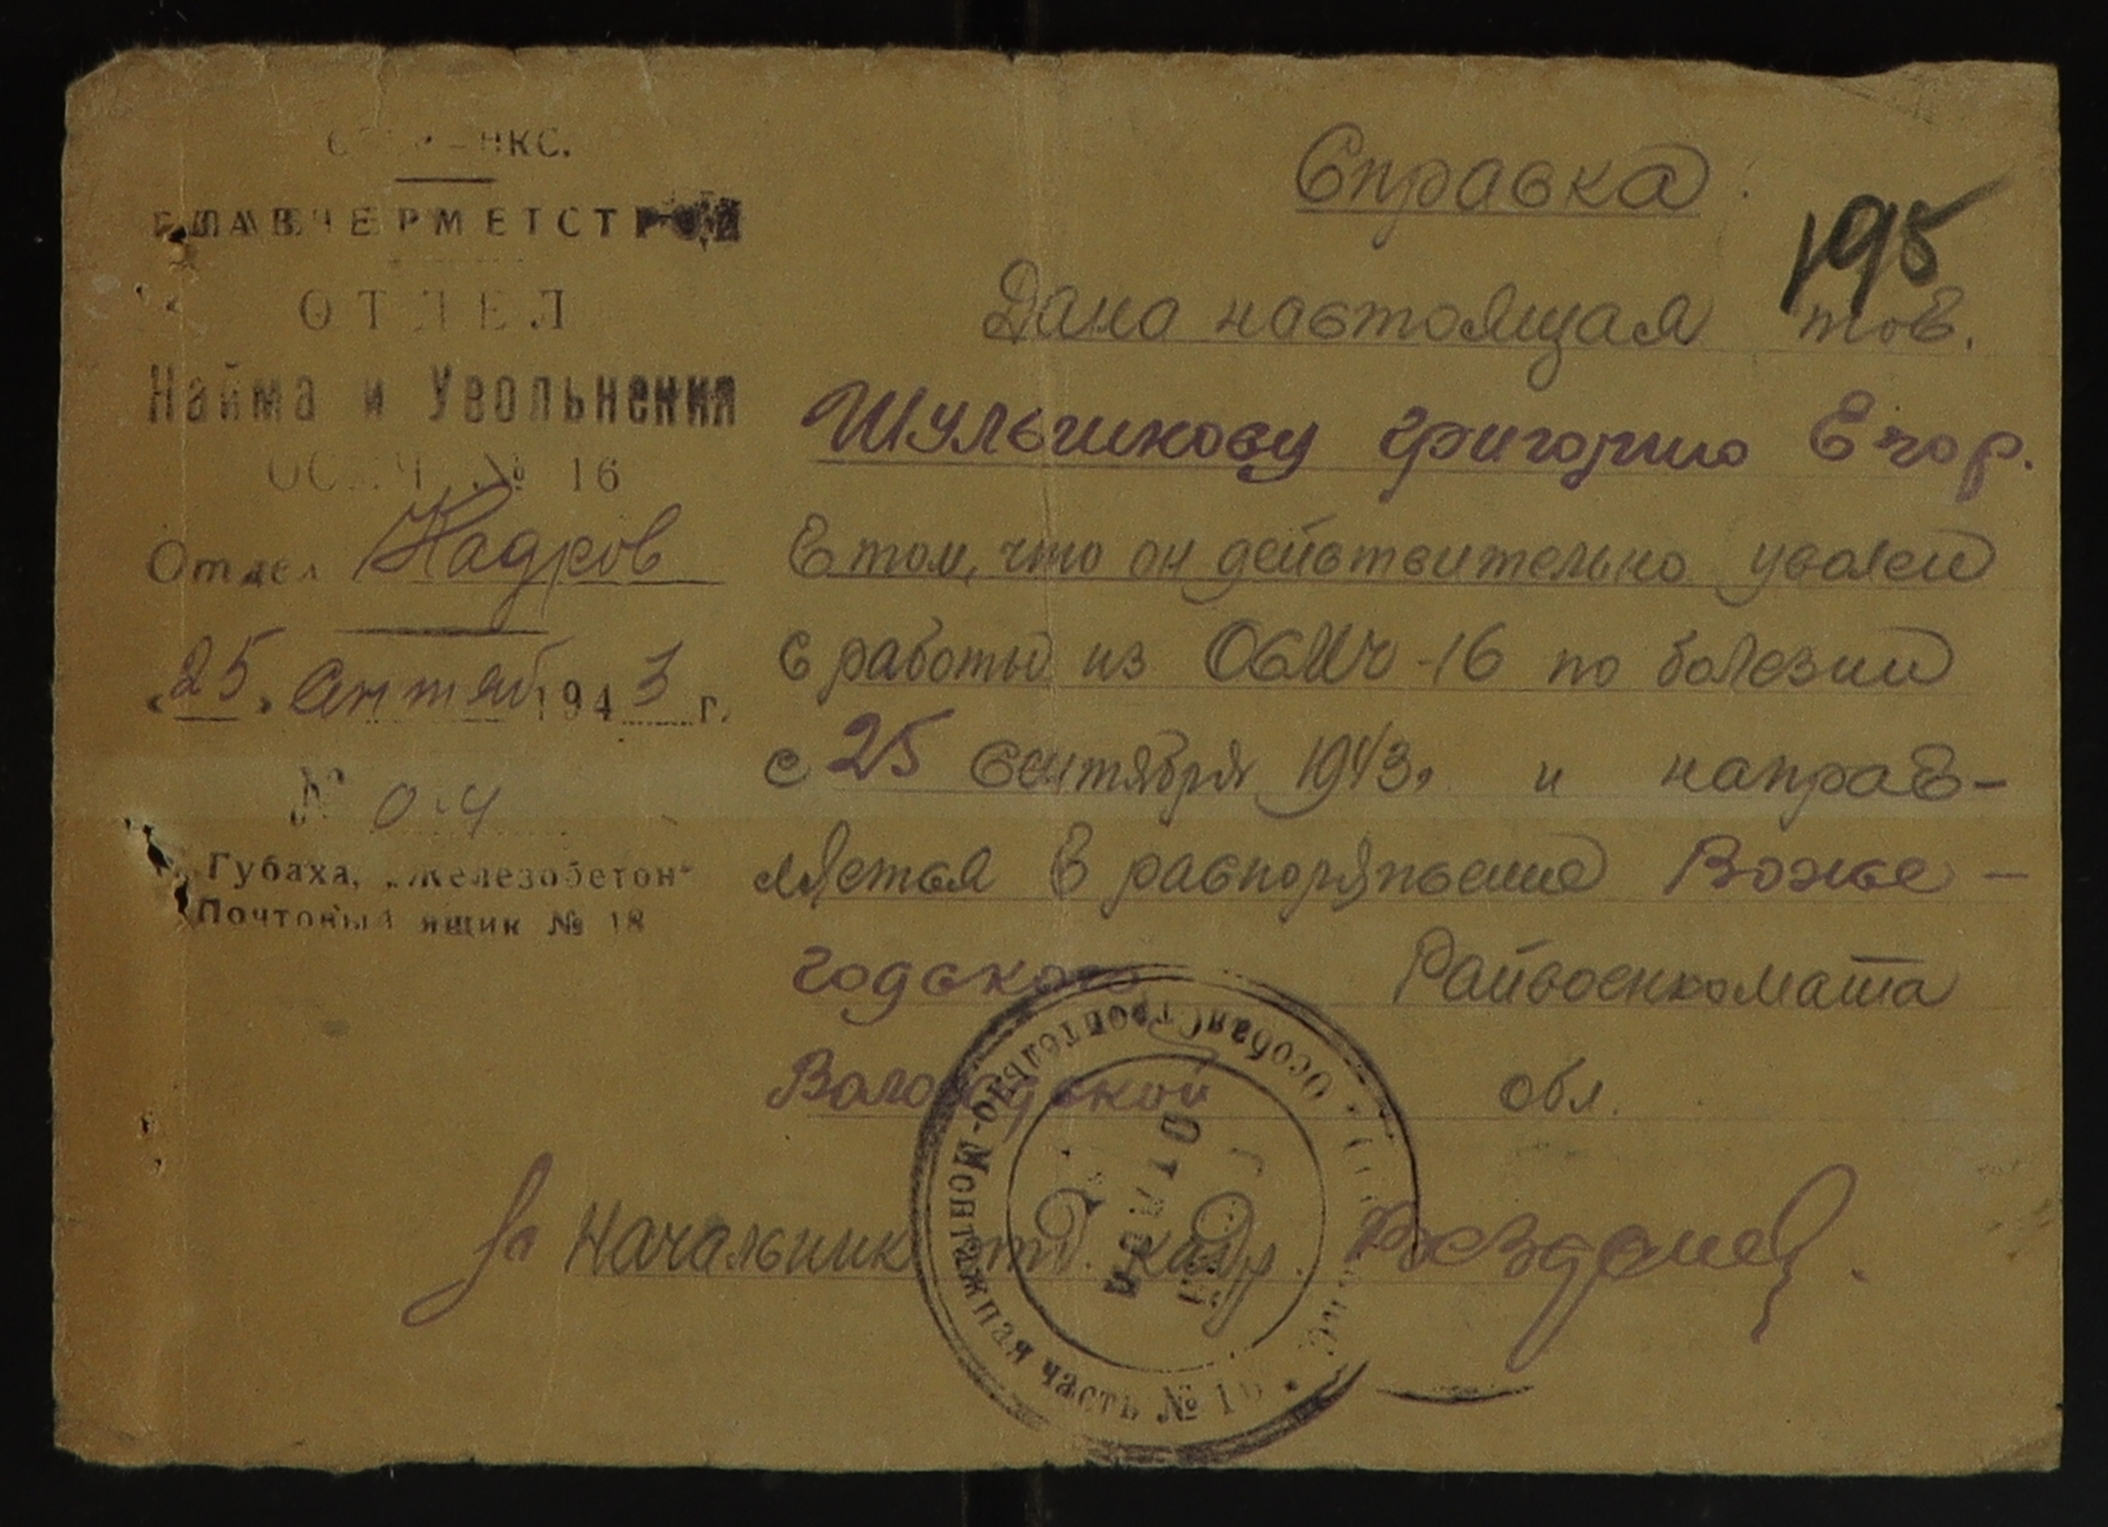 НКС.
ГЛАВЧЕРМЕТСТРОЙ
ОТДЕЛ
Найма и Увольнения
№ 16
Отдел Кадров
«25» Сентяб 1943 г.
№ 0-4
Губаха, „Железобетон“
Почтовый ящик № 18
Справка
195
Дана настоящая тов.
Шульгикову Григорию Егор.
в том, что он действительно уволен
с работы из ОСМЧ-16 по болезни
с 25 сентября 1943 г. и направ-
ляется в распоряжение Воже-
годского Райвоенкомата
Вологодской обл.
За Начальник отд. кадр.
Особая Строительно-Монтажная часть № 16
Отдел